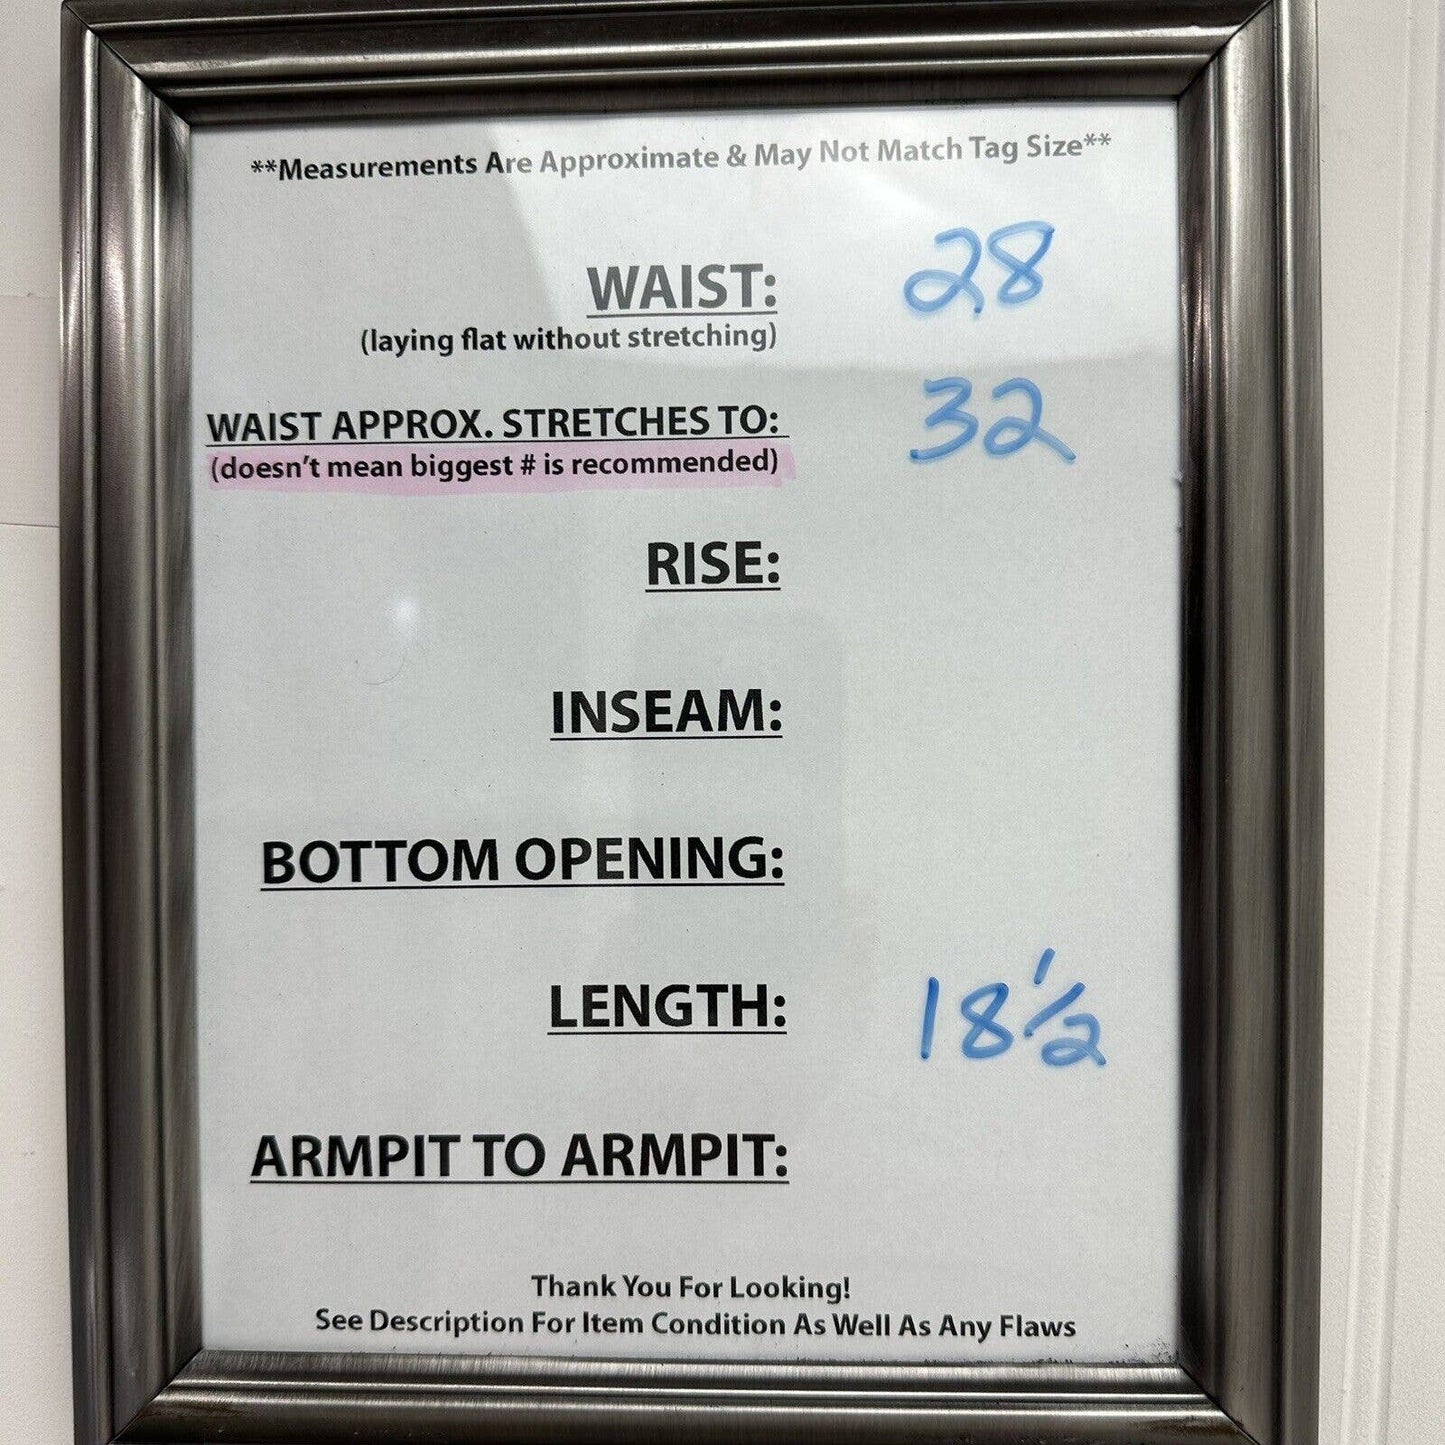 **Measurements Are Approximate & May Not Match Tag Size**
WAIST: 28
(laying flat without stretching)
WAIST APPROX. STRETCHES TO: 32
(doesn't mean biggest # is recommended)
RISE:
INSEAM:
BOTTOM OPENING:
LENGTH: 18 1/2
ARMPIT TO ARMPIT:
Thank You For Looking!
See Description For Item Condition As Well As Any Flaws